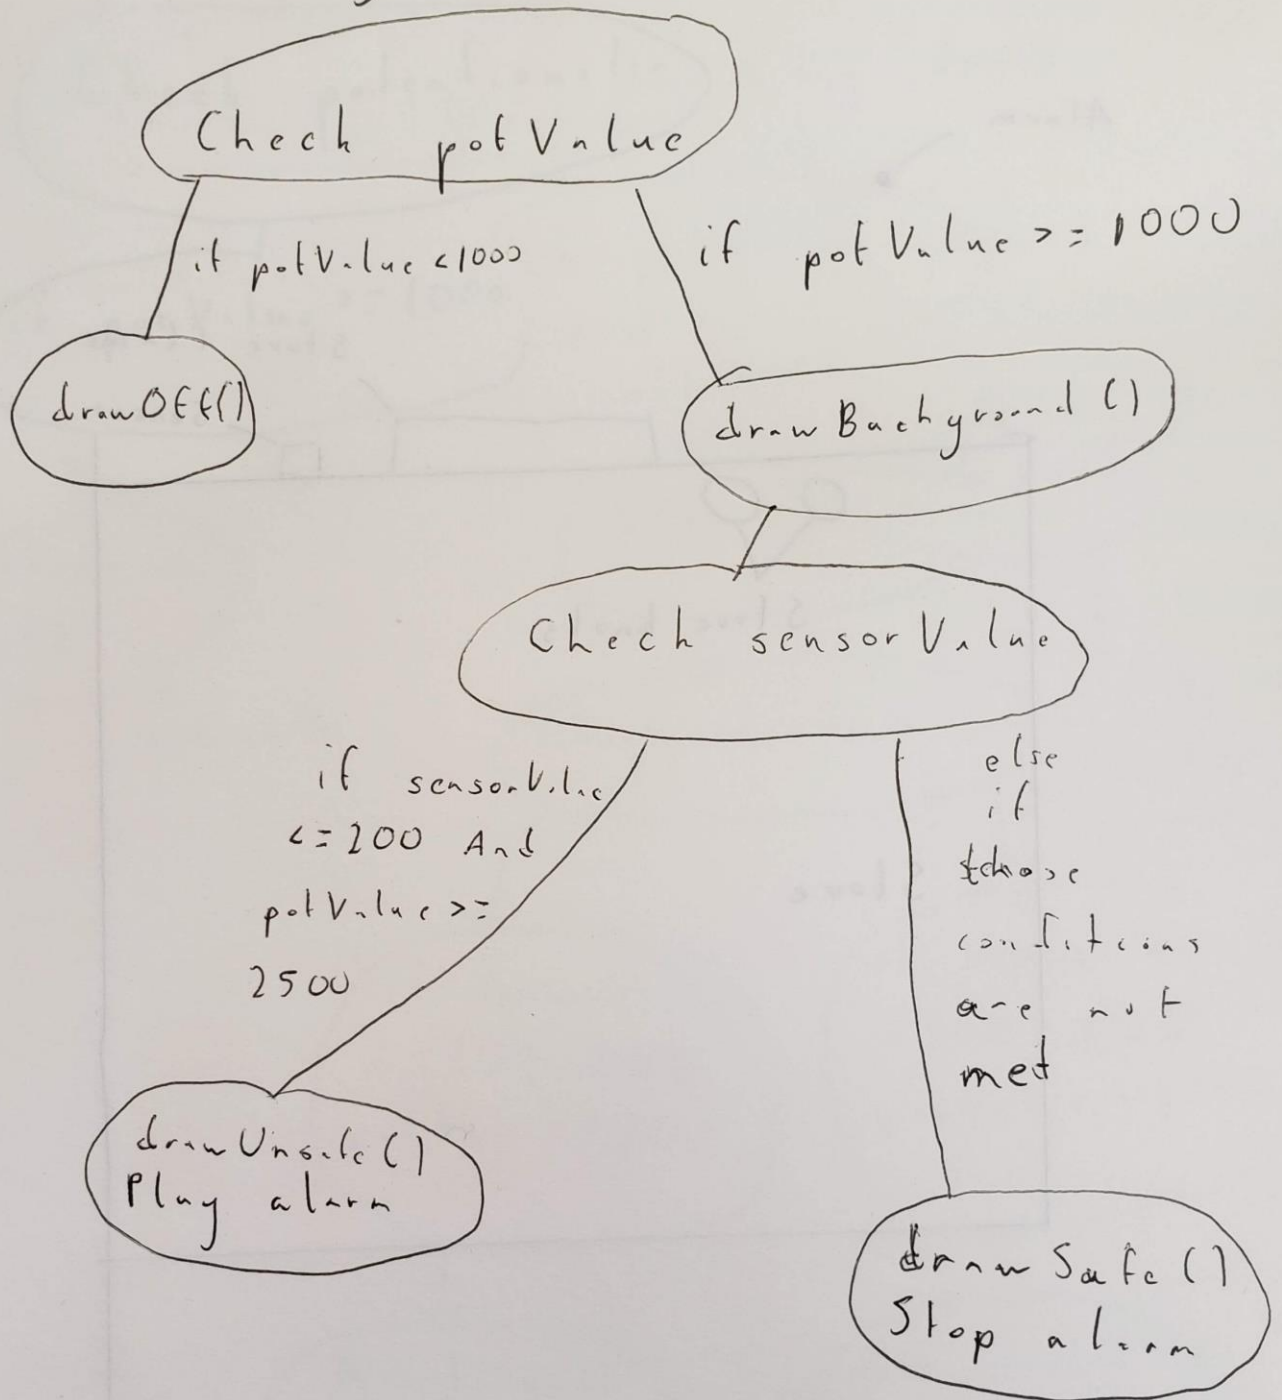 Check potValue
if potValue <1000
if potValue >= 1000
drawOff()
drawBackground()
Check sensorValue
if sensorValue
<=200 And
potValue >=
2500
else
if
those
conditions
are not
met
drawUnsafe()
Play alarm
drawSafe()
Stop alarm